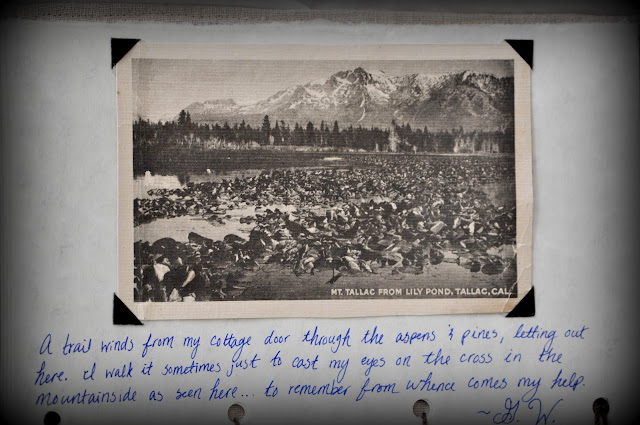 MT. TALLAC FROM LILY POND, TALLAC, CAL.
A trail winds from my cottage door through the aspens & pines, letting out
here. I walk it sometimes just to cast my eyes on the cross in the
mountainside as seen here... to remember from whence comes my help.
~G. W.